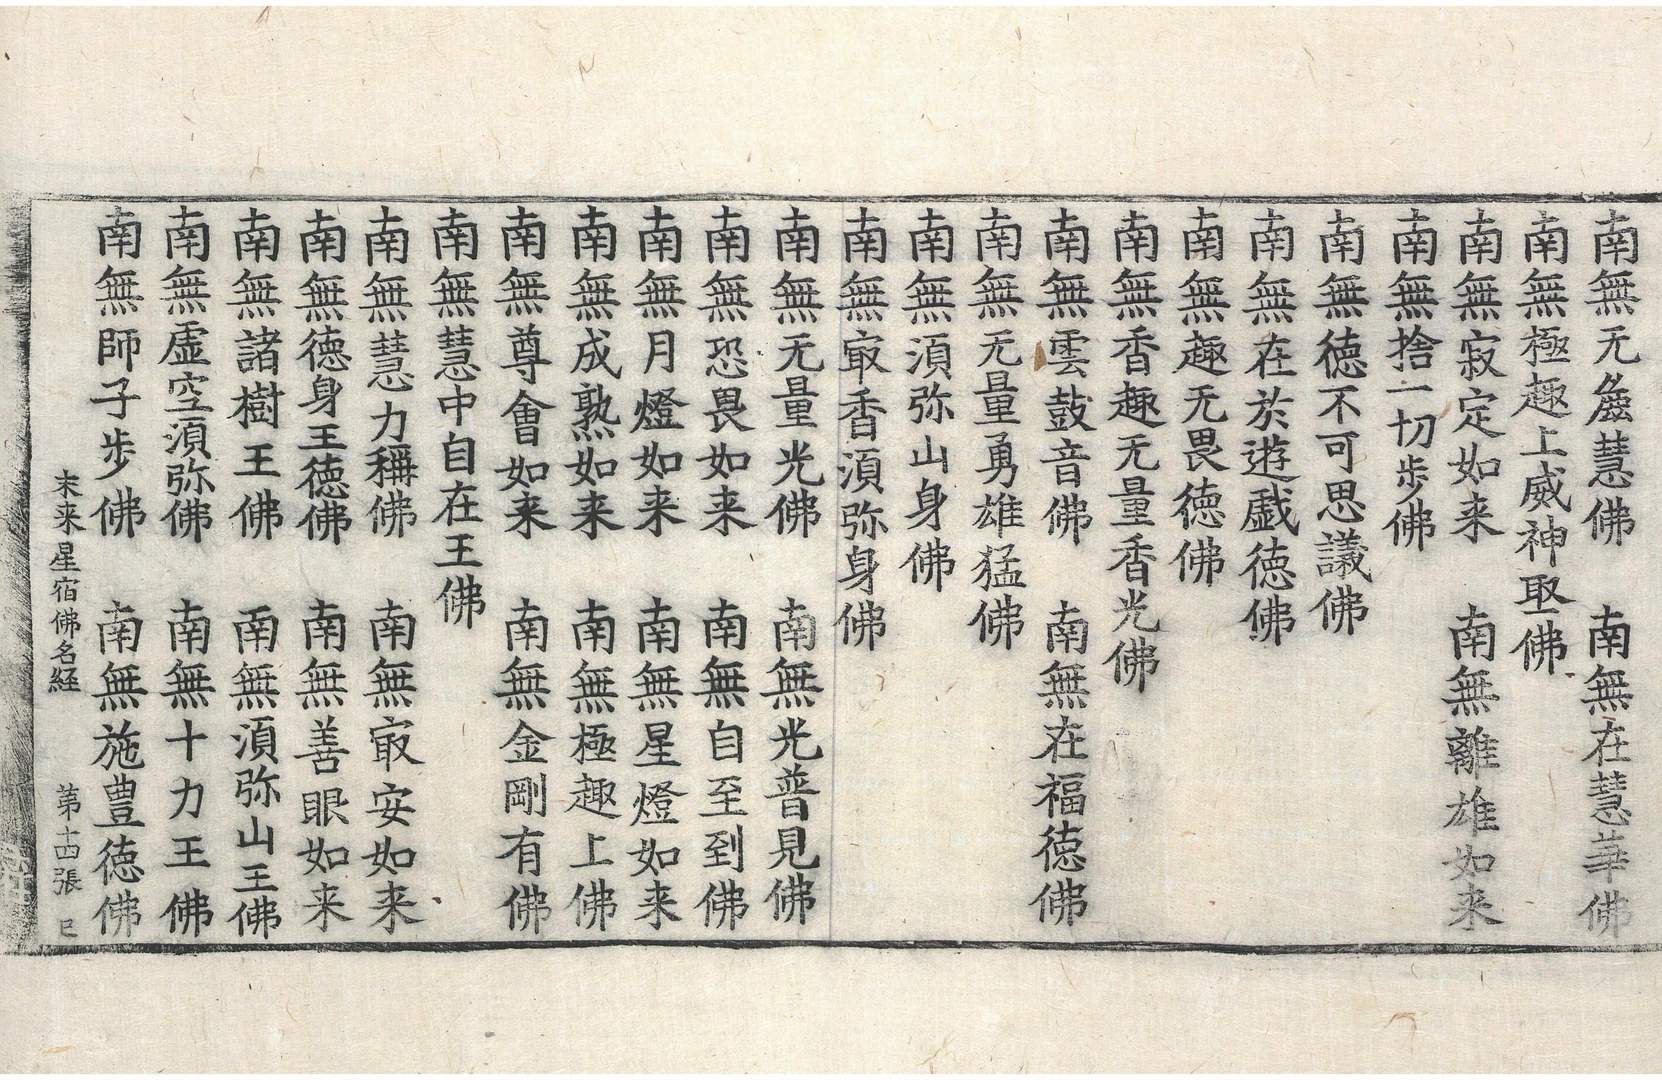 南無无㡭慧佛　南無在慧華佛
南無極趣上威神聖佛
南無寂定如来　南無離雄如来
南無捨一切步佛
南無德不可思議佛
南無在於遊戲德佛
南無趣无畏德佛
南無香趣无量香光佛
南無雲鼓音佛　南無在福德佛
南無无量勇雄猛佛
南無湏弥山身佛
南無㝡香湏弥身佛
南無无量光佛　南無光普見佛
南無恐畏如来　南無自至到佛
南無月燈如来　南無星燈如来
南無成熟如来　南無極趣上佛
南無尊會如来　南無金剛有佛
南無慧中自在王佛
南無慧力稱佛　南無㝡安如来
南無德身王德佛　南無善眼如来
南無諸樹王佛　南無湏弥山王佛
南無虛空湏弥佛　南無十力王佛
南無師子步佛　南無施豊德佛
末来星宿佛名経　苐十四張　巳